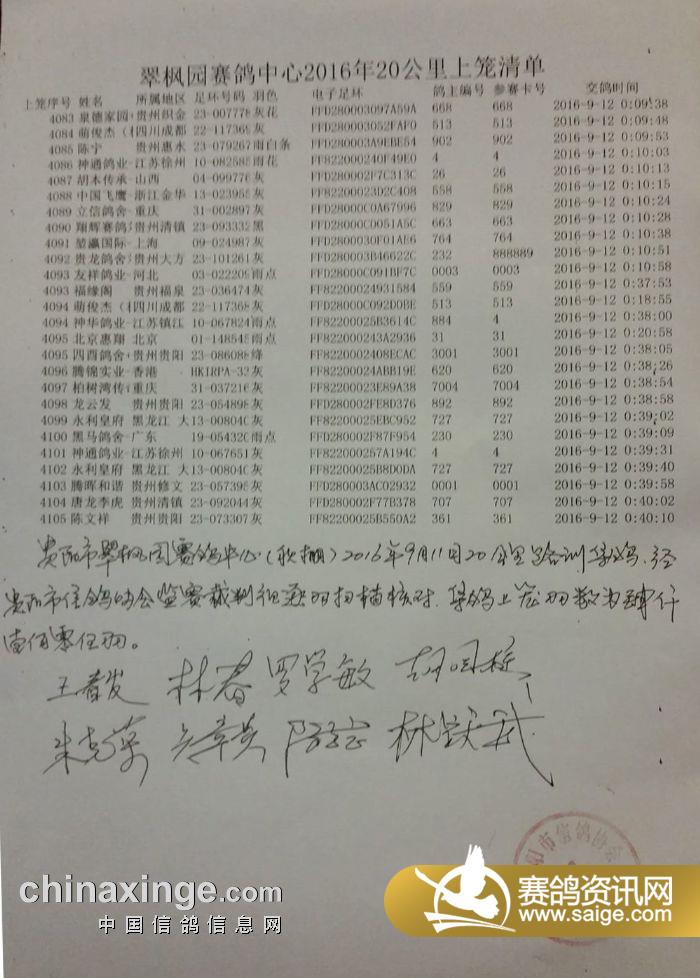 翠枫园赛鸽中心2016年20公里上笼清单
上笼序号 姓名 所属地区 足环号码 羽色 电子足环 鸽主编号 参赛卡号 交鸽时间
4083 泉德家园- 贵州织金 23-007778 灰花 FFD280003097A59A 668 668 2016-9-12 0:09:38
4084 萌俊杰（杜 四川成都 22-117369 灰 FFD280003052FAF0 513 513 2016-9-12 0:09:48
4085 陈宁 贵州惠水 23-079267 雨白条 FFD280003A9EBE54 902 902 2016-9-12 0:09:53
4086 神通鸽业- 江苏徐州 10-082585 雨花 FF822000240F49E0 4 4 2016-9-12 0:10:03
4087 胡木传承- 山西 04-099776 灰 FFD280002F7C313C 26 26 2016-9-12 0:10:13
4088 中国飞鹰- 浙江金华 13-023955 灰 FF82200023D2C408 558 558 2016-9-12 0:10:15
4089 立信鸽舍- 重庆 31-002897 灰 FFD28000C0A67996 829 829 2016-9-12 0:10:24
4090 翔辉赛鸽 贵州清镇 23-093332 黑 FFD28000CD051A5C 663 663 2016-9-12 0:10:28
4091 堃瀛国际- 上海 09-024987 灰 FFD280030F01AE6 764 764 2016-9-12 0:10:38
4092 贵龙鸽舍 贵州大方 23-101261 灰 FFD280003B46622C 232 888889 2016-9-12 0:10:51
4093 友祥鸽业- 河北 03-022209 雨点 FFD28000C091BF7C 0003 0003 2016-9-12 0:10:58
4093 福缘阁 贵州福泉 23-036474 灰 FF82200024931584 559 559 2016-9-12 0:37:53
4094 萌俊杰（杜 四川成都 22-117368 灰 FFD28000C092D0BE 513 513 2016-9-12 0:18:55
4094 神华鸽业- 江苏镇江 10-067824 雨点 FF82200025B3614C 884 4 2016-9-12 0:38:00
4095 北京惠翔 北京 01-148545 雨点 FF822000243A2936 31 31 2016-9-12 0:20:58
4095 四酉鸽舍- 贵州贵阳 23-086088 绛 FF8220002408ECAC 3001 3001 2016-9-12 0:38:05
4096 腾锦实业- 香港 HKIRPA-33 灰 FF82200024ABB19E 620 620 2016-9-12 0:38:26
4097 柏树湾传 重庆 31-037216 灰 FF82200023E89A38 7004 7004 2016-9-12 0:38:54
4098 龙云发 贵州贵阳 23-054898 灰 FFD280002FE8D376 892 892 2016-9-12 0:38:58
4099 永利皇府 黑龙江 大 13-00804C 灰 FF82200025EBC952 727 727 2016-9-12 0:39:02
4100 黑马鸽舍- 广东 19-05432C 雨点 FFD280002F87F954 230 230 2016-9-12 0:39:09
4101 神通鸽业- 江苏徐州 10-067651 灰 FF822000257A194C 4 4 2016-9-12 0:39:31
4102 永利皇府 黑龙江 大 13-00804C 灰 FF82200025B8D0DA 727 727 2016-9-12 0:39:40
4103 腾晖和谐 贵州修文 23-057395 灰 FFD280003AC02932 0001 0001 2016-9-12 0:39:58
4104 唐龙李虎 贵州清镇 23-092044 灰 FFD280002F77B378 707 707 2016-9-12 0:40:02
4105 陈文祥 贵州贵阳 23-073307 灰 FF82200025B550A2 361 361 2016-9-12 0:40:10
贵阳市翠枫园赛鸽中心（秋棚）2016年9月11日20公里路训集鸽，经
贵阳市信鸽协会监赛裁判组逐羽扫描核对，集鸽上笼羽数为肆仟
壹佰零伍羽。
林春 罗学敏
林跃武
阳市信鸽协会
chinaxinge.com
中国信鸽信息网
赛鸽资讯网
www.saige.com